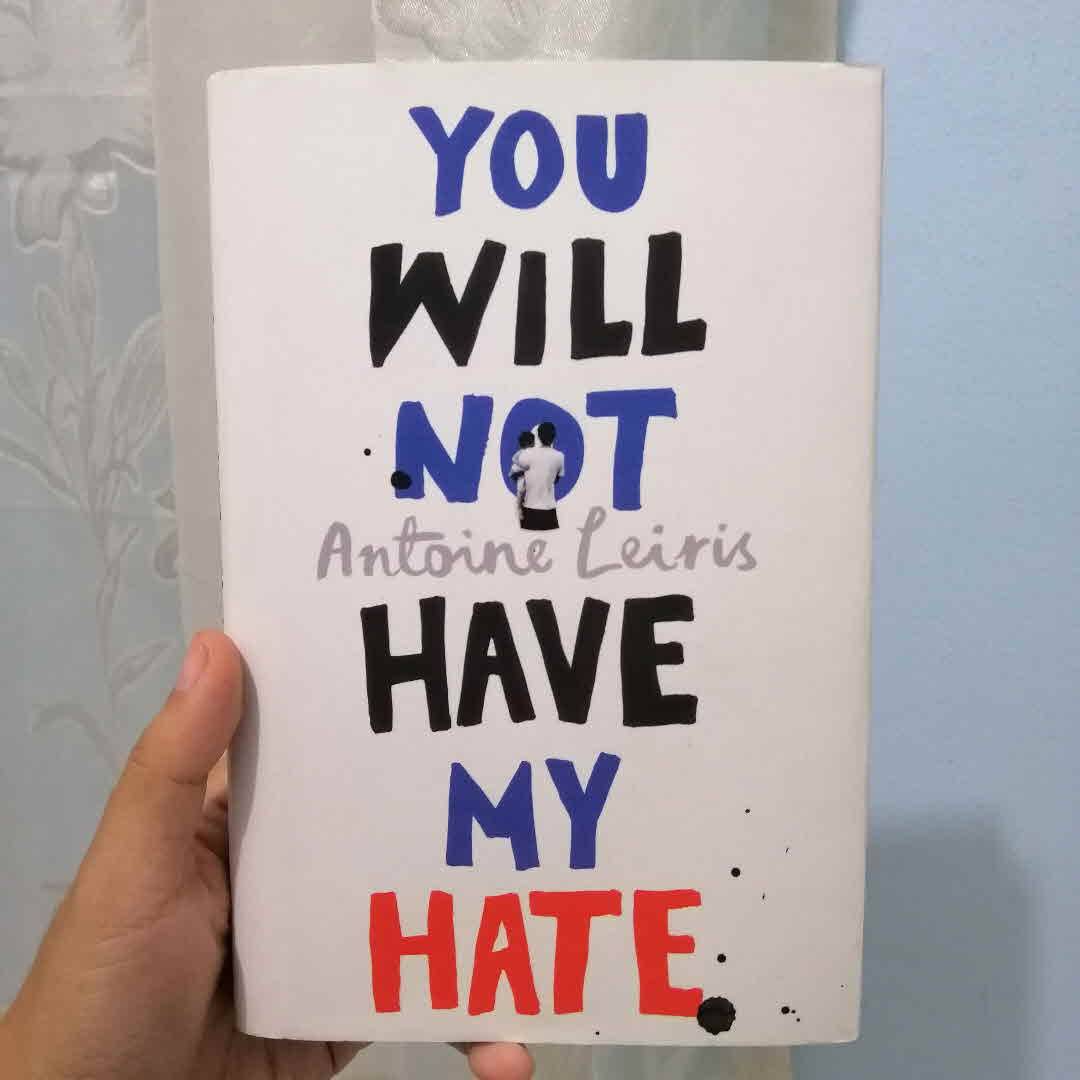 YOU
WILL
NOT
Antoine Leiris
HAVE
MY
HATE